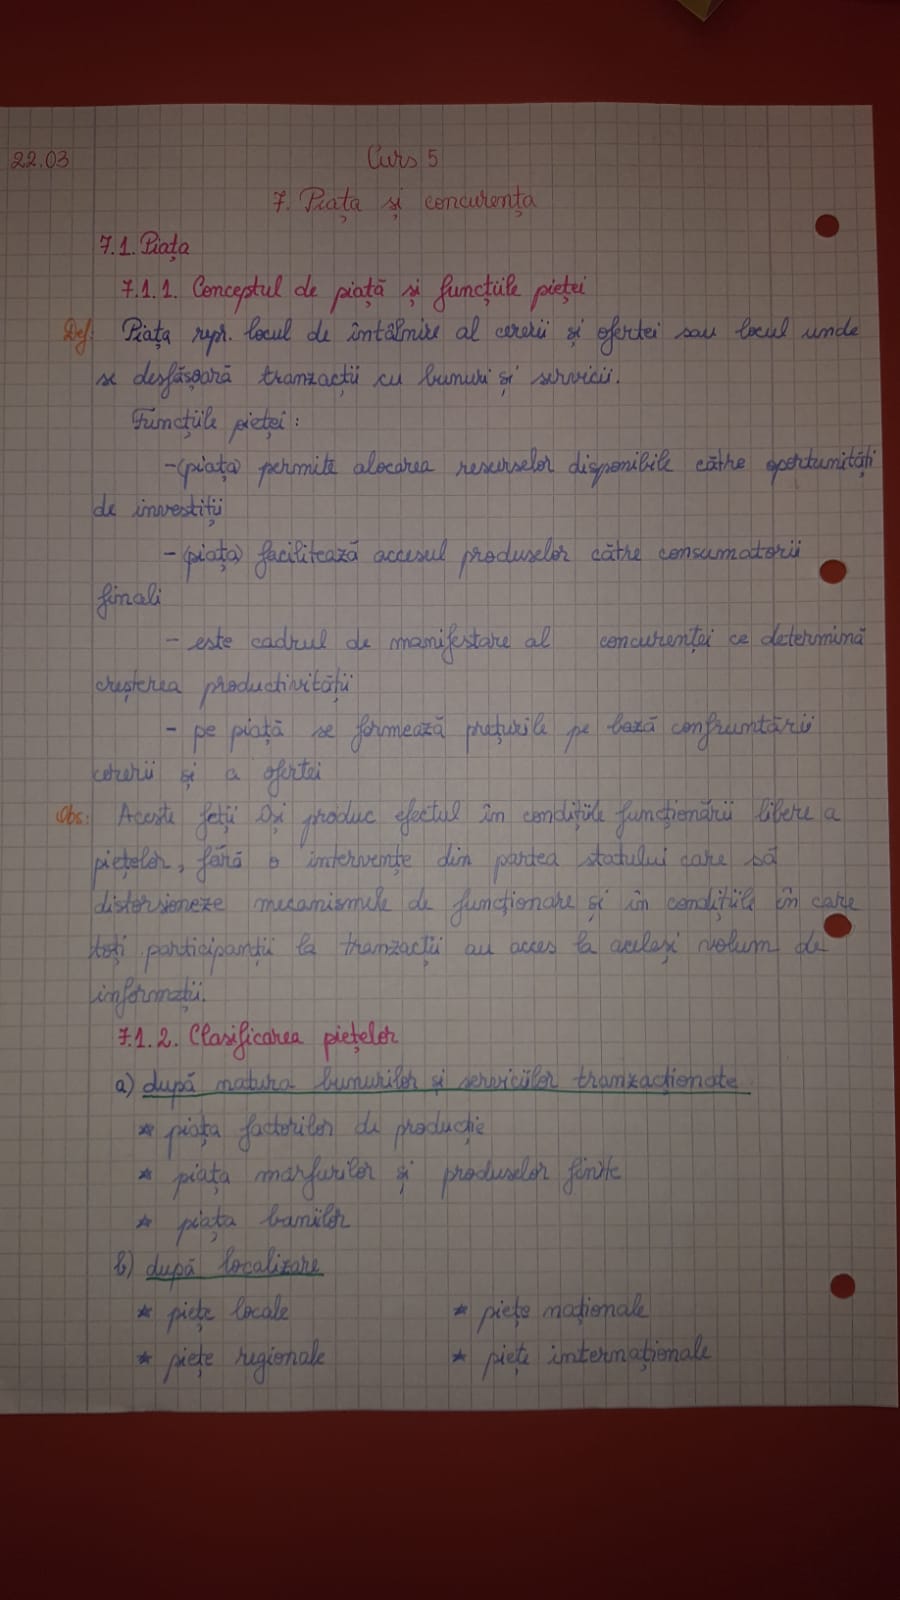 22.03
Curs 5
7. Piața și concurența
7.1. Piața
7.1.1. Conceptul de piață și funcțiile pieței
Def: Piața repr. locul de întâlnire al cererii și ofertei sau locul unde
se desfășoară tranzacții cu bunuri și servicii.
Funcțiile pieței:
-(piața) permite alocarea resurselor disponibile către oportunități
de investiții
-(piața) facilitează accesul produselor către consumatorii
finali
- este cadrul de manifestare al concurenței ce determină
creșterea productivității
- pe piață se formează prețurile pe bază confruntării
cererii și a ofertei
Obs: Aceste fcții își produc efectul în condițiile funcționării libere a
piețelor, fără o intervenție din partea statului care să
distorsioneze mecanismele de funcționare și în condițiile în care
toți participanții la tranzacții au acces la același volum de
informații.
7.1.2. Clasificarea piețelor
a) după natura bunurilor și serviciilor tranzacționate
* piața factorilor de producție
* piața mărfurilor și produselor finite
* piața banilor
b) după localizare
* piețe locale * piețe naționale
* piețe regionale * piețe internaționale